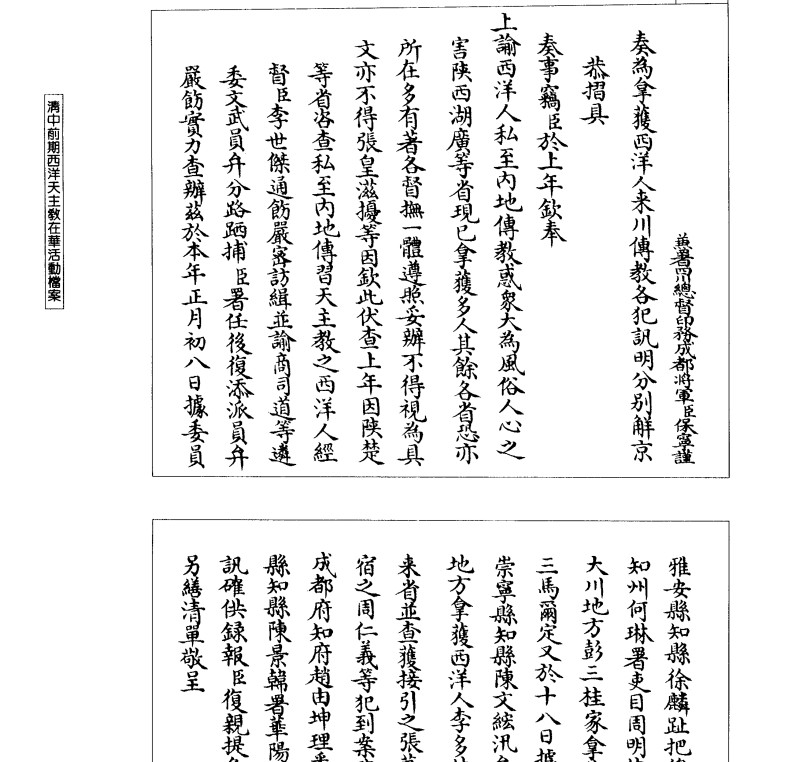 兼署四川總督印務成都將軍臣保寧謹
奏為拿獲西洋人来川傳教各犯訊明分别解京
恭摺具
奏事竊臣於上年欽奉
上諭西洋人私至内地傳教惑衆大為風俗人心之
害陝西湖廣等省現已拿獲多人其餘各省恐亦
所在多有著各督撫一體遵照妥辦不得視為具
文亦不得張皇滋擾等因欽此伏查上年因陝楚
等省咨查私至内地傳習天主教之西洋人經
督臣李世傑通飭嚴密訪緝並諭商司道等遴
委文武員弁分路跴捕臣署任後復添派員弁
嚴飭實力查辦兹於本年正月初八日據委員
雅安縣知縣徐麟趾把
知州何琳署吏目周明
大川地方彭三桂家拿
三馬爾定又於十八日據
崇寧縣知縣陳文絃汛
地方拿獲西洋人李多
来省並查獲接引之張
宿之周仁義等犯到案
成都府知府趙由坤理
縣知縣陳景韓署華陽
訊確供録報臣復親提
另繕清單敬呈
清中前期西洋天主教在華活動檔案